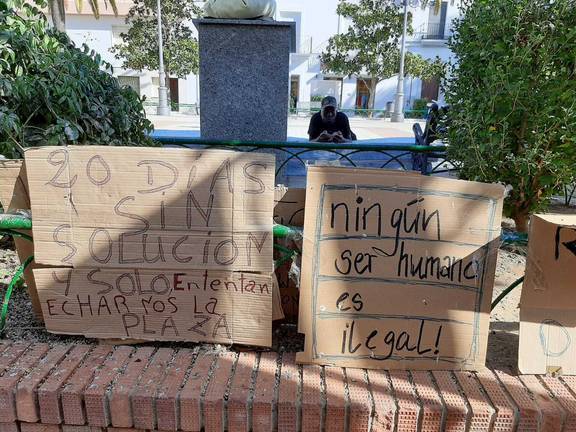 20 DÍAS
SIN
SOLUCIÓN
Y SOLO Ententan
ECHARNOS LA
PLAZA
ningún
ser humano
es
ilegal!